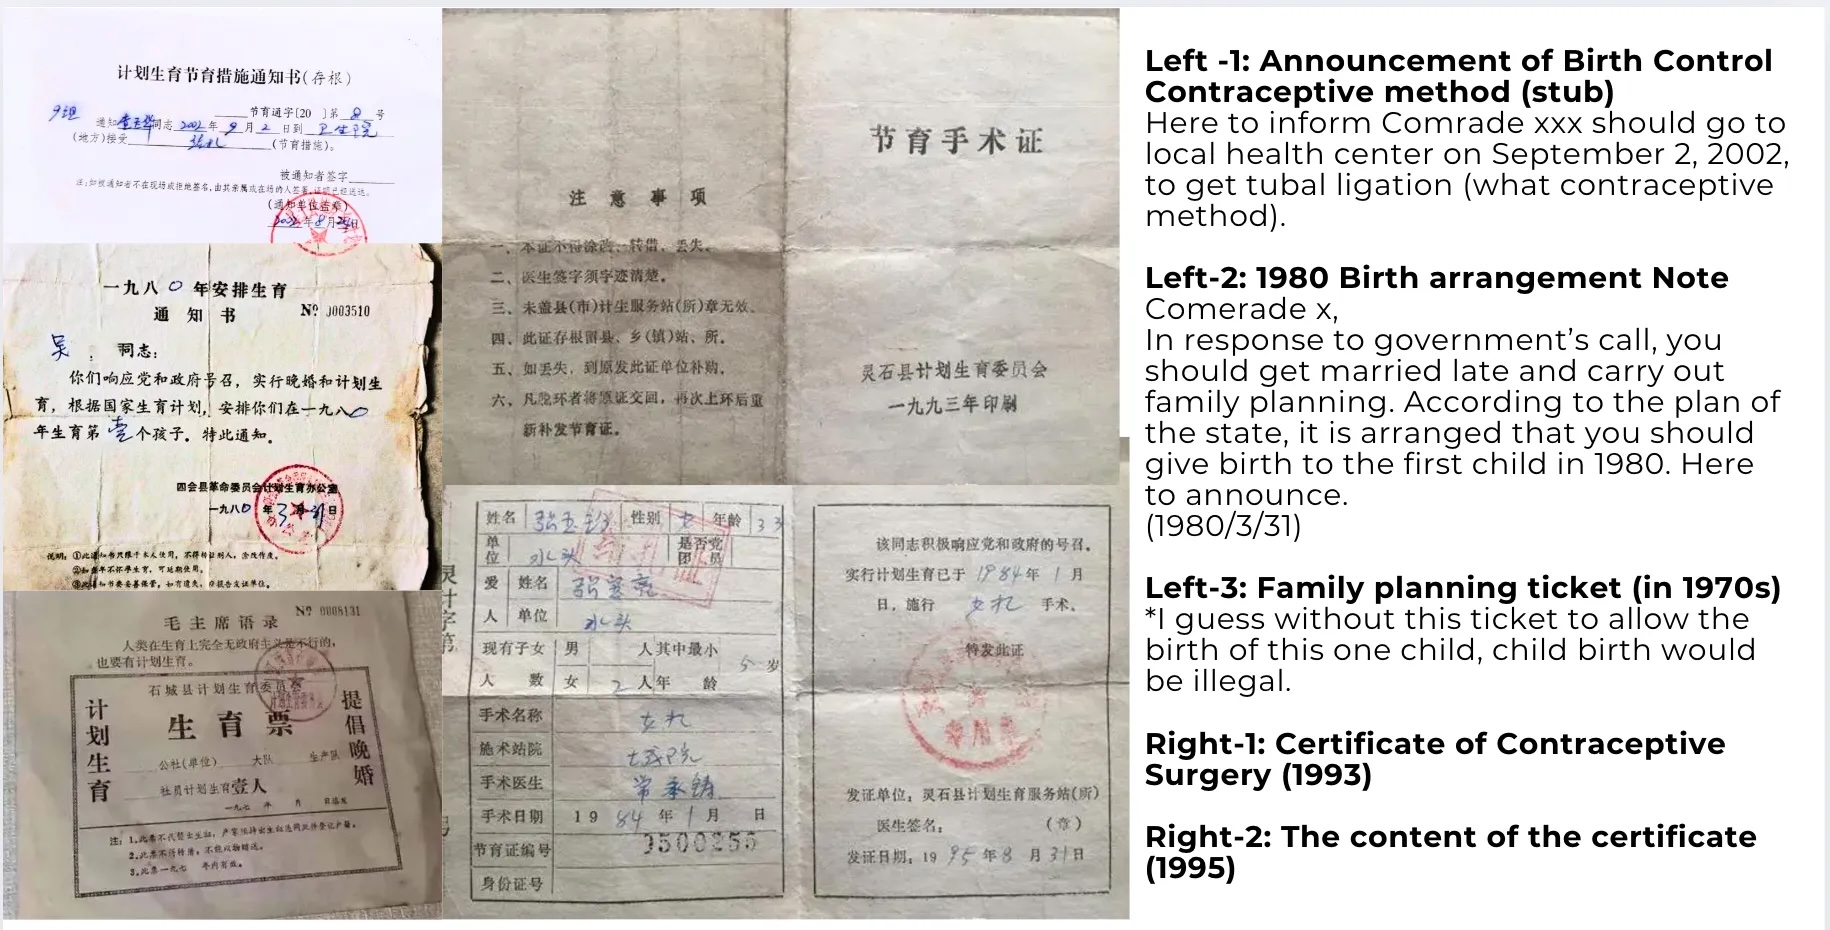 计划生育节育措施通知书(存根)
节育通字[20 ]第 8 号
通知 同志 2002 年 9 月 2 日到 卫生院
(地方)接受 (节育措施)。
被通知者签字
注:如被通知者不在现场或拒绝签名,由其亲属或在场的人签署,证明已经送达。
(通知单位盖章)
2002年8月 日
一九八0年安排生育
通知书 Nº 0003510
吴 同志:
你们响应党和政府号召,实行晚婚和计划生
育,根据国家生育计划,安排你们在一九八0
年生育第壹个孩子。特此通知。
四会县革命委员会计划生育办公室
一九八0年3月31日
说明:①此通知书只限于本人使用,不得转让别人,涂改作废。
②如当年不怀孕生育,可延期使用。
③此通知书要妥善保管,如有遗失,应报告发证单位。
Nº 0008131
毛主席语录
人类在生育上完全无政府主义是不行的,
也要有计划生育。
石城县计划生育委员会
计划生育
生育票
提倡晚婚
公社(单位) 大队 生产队
社员计划生育壹人
一九七 年 月 日
注:1.此票不代替出生证,
2.此票不得转借,不能
3.此票一九七 年内有效。
注意事项
一、本证不得涂改、转借、丢失。
二、医生签字须字迹清楚。
三、未盖县(市)计生服务站(所)章无效。
四、此证存根留县、乡(镇)站、所。
五、如丢失,到原发此证单位补购。
六、凡脱环者将原证交回,再次上环后重
新补发节育证。
节育手术证
灵石县计划生育委员会
一九九三年印刷
姓名 张玉 性别 女 年龄 33
单位 水头 是否党团员
爱人 姓名 张
单位 水头
现有子女人数 男 人 女 2人 其中最小年龄 5岁
手术名称 女扎
施术站院
手术医生 常
手术日期 1984年1月 日
节育证编号 0500255
身份证号
灵计字第
该同志积极响应党和政府的号召。
实行计划生育已于1984年1月
日,施行 女扎 手术。
特发此证
发证单位:灵石县计划生育服务站(所)
医生签名: (章)
发证日期:1995年8月31日
Left -1: Announcement of Birth Control
Contraceptive method (stub)
Here to inform Comrade xxx should go to
local health center on September 2, 2002,
to get tubal ligation (what contraceptive
method).
Left-2: 1980 Birth arrangement Note
Comerade x,
In response to government's call, you
should get married late and carry out
family planning. According to the plan of
the state, it is arranged that you should
give birth to the first child in 1980. Here
to announce.
(1980/3/31)
Left-3: Family planning ticket (in 1970s)
*I guess without this ticket to allow the
birth of this one child, child birth would
be illegal.
Right-1: Certificate of Contraceptive
Surgery (1993)
Right-2: The content of the certificate
(1995)